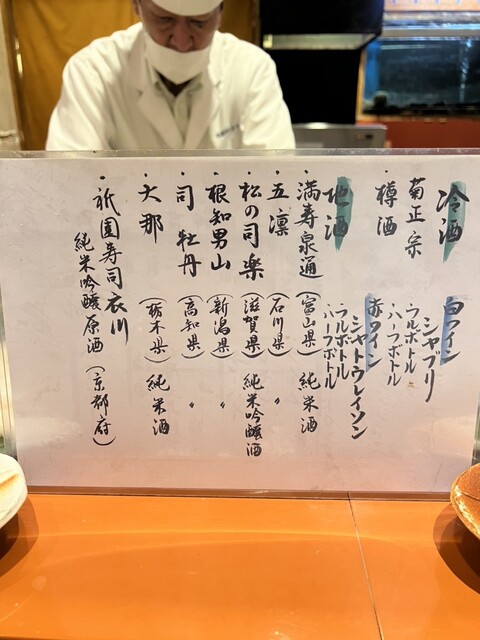 冷酒
菊正宗
・樽酒
白ワイン
シャブリ
フルボトル
ハーフボトル
赤ワイン
シャトウレイソン
フルボトル
ハーフボトル
地酒
・満寿泉通(富山県)純米酒
・五凛(石川県)〃
・松の司楽(滋賀県)純米吟醸酒
・根知男山(新潟県)〃
・司牡丹(高知県)〃
・大那(栃木県)純米酒
・祇園寿司衣川
純米吟醸原酒(京都府)